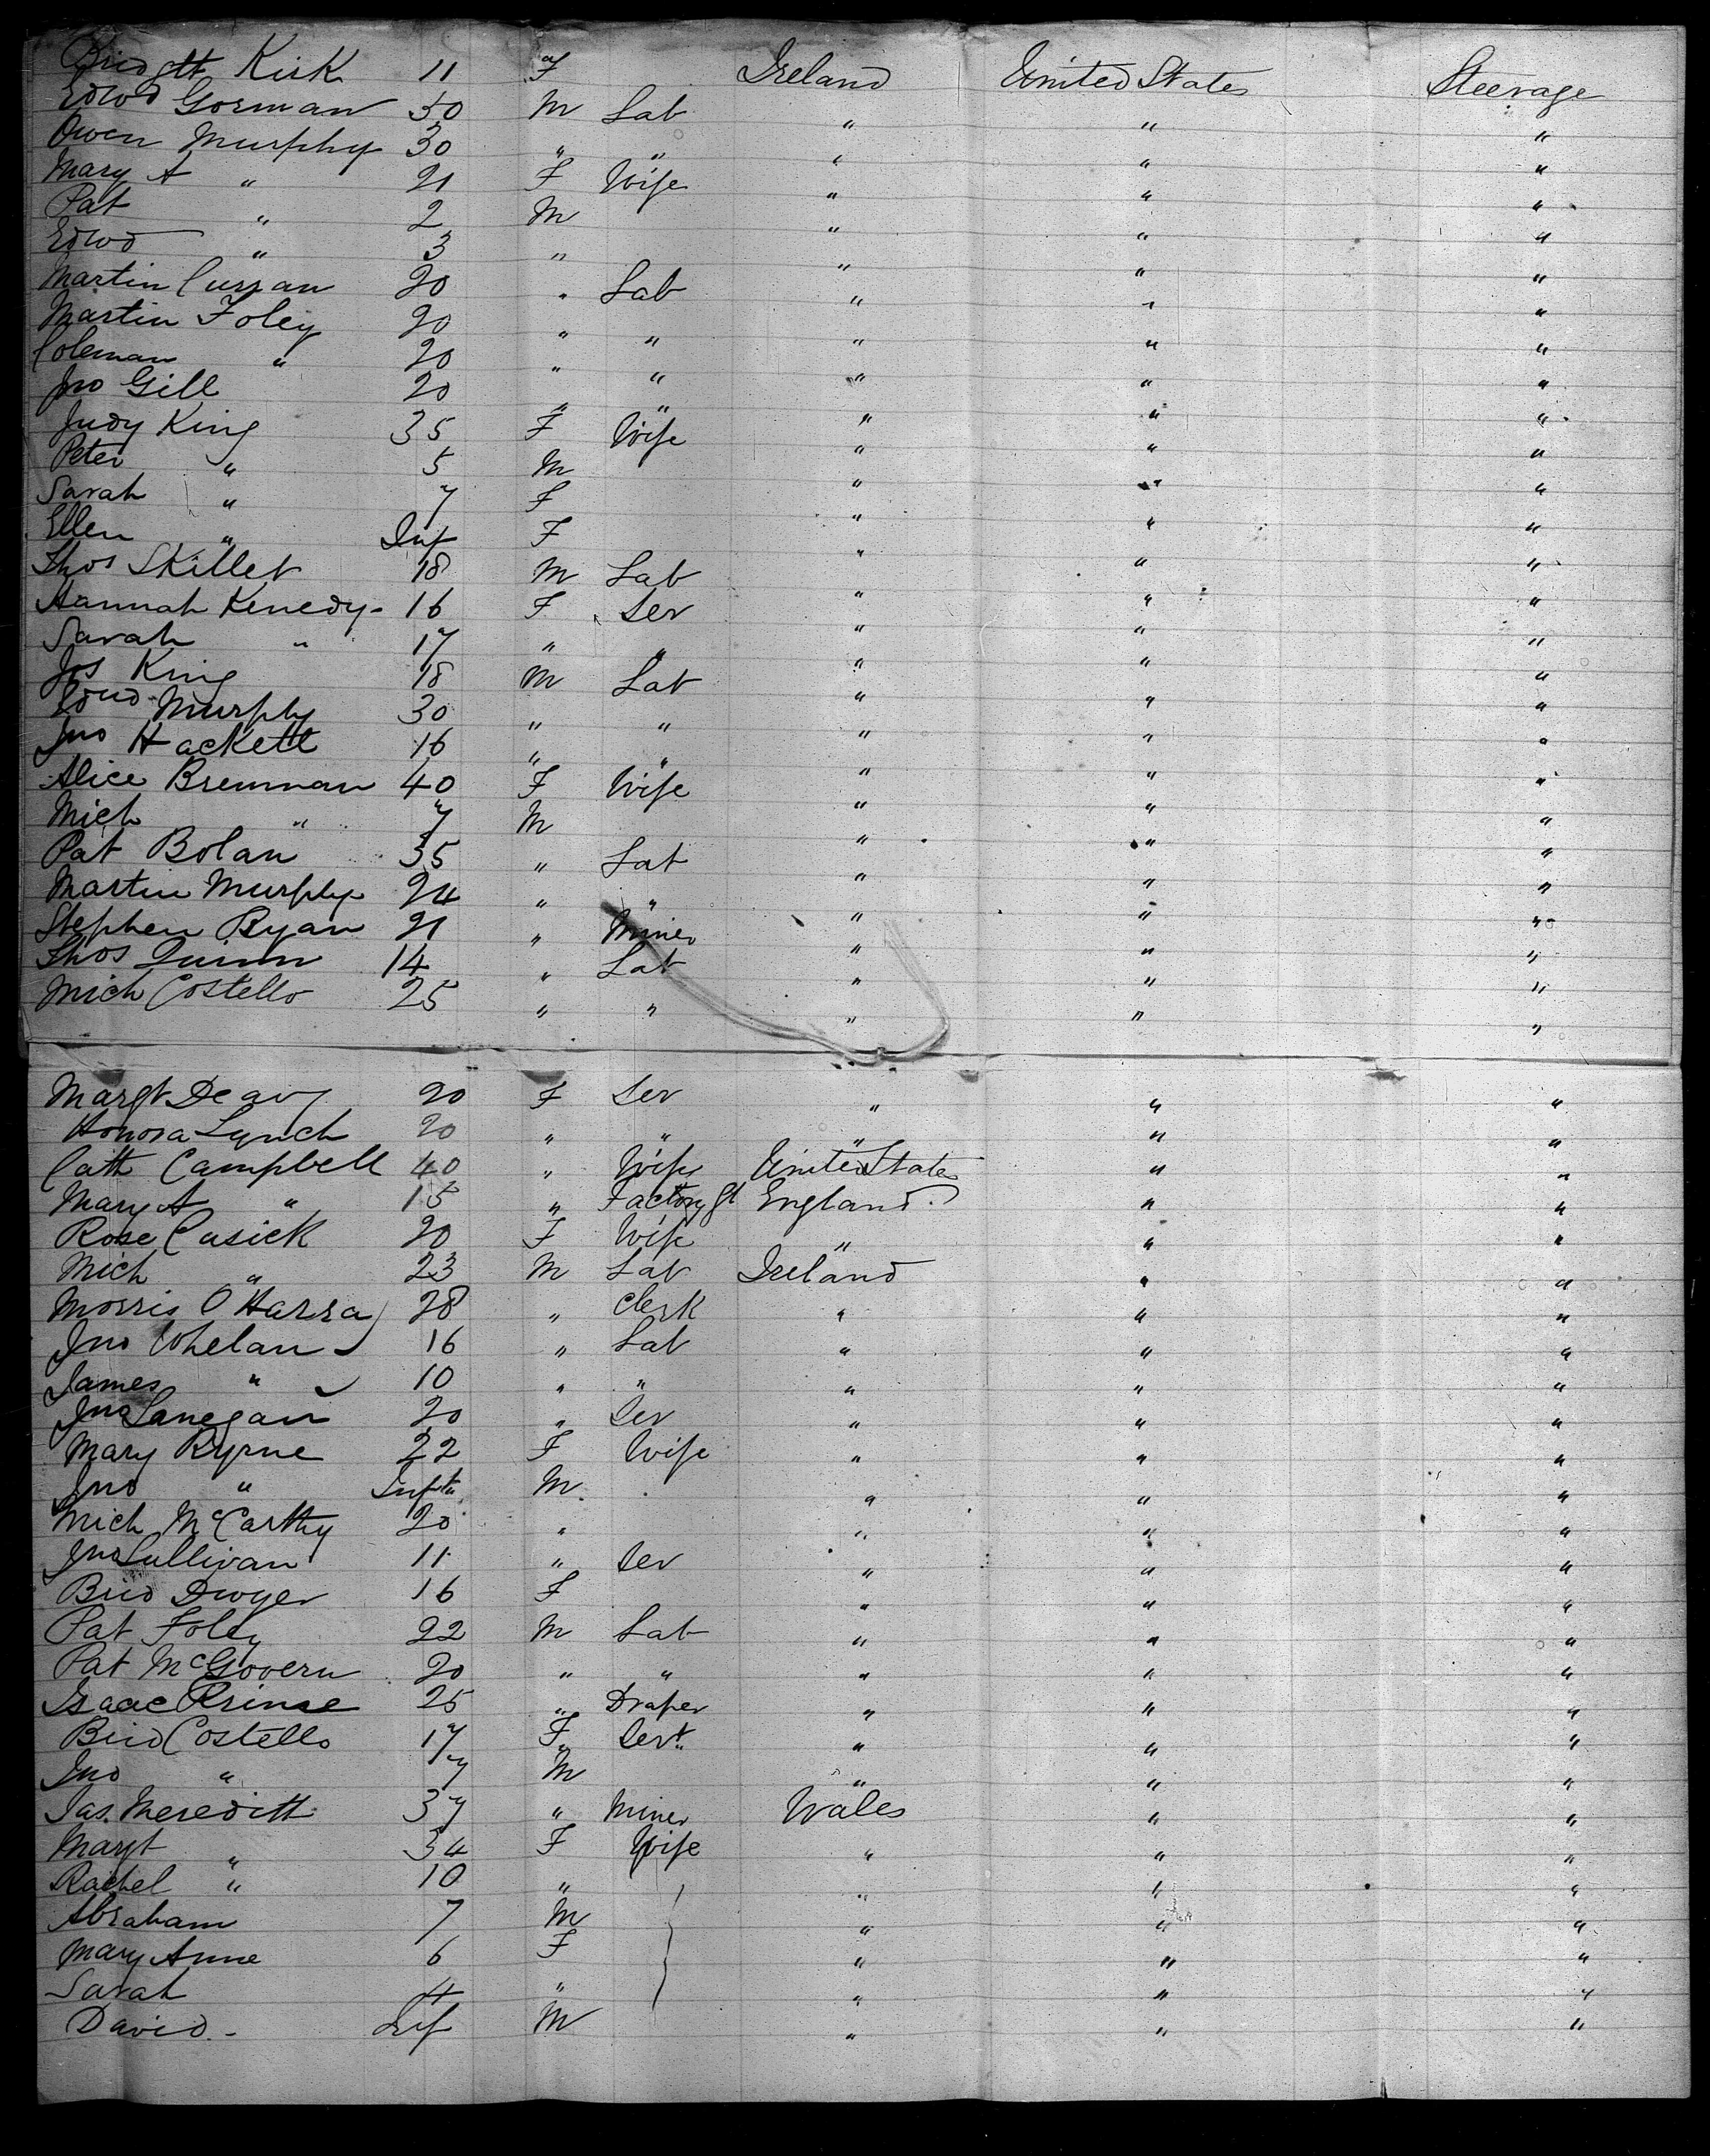 Bridgtt Kirk 11 F Ireland United States Steerage
Edwd Gorman 50 M Lab " " "
Owen Murphy 30 " " " " "
Mary A " 21 F Wife " " "
Pat " 2 M " " "
Edwd " 3 " " " "
Martin Curran 20 " Lab " " "
Martin Foley 20 " " " " "
Coleman " 20 " " " " "
Jno Gill 20 " " " " "
Judy King 35 F Wife " " "
Peter " 5 M " " "
Sarah " 7 F " " "
Ellen " Inf F " " "
Thos Skillet 18 M Lab " " "
Hannah Kenedy 16 F Ser " " "
Sarah " 17 " " " " "
Jos King 18 M Lab " " "
Edwd Murphy 30 " " " " "
Jno Hackett 16 " " " " "
Alice Brennan 40 F Wife " " "
Mich " 7 M " " "
Pat Bolan 35 " Lab " " "
Martin Murphy 24 " " " " "
Stephen Ryan 21 " Miner " " "
Thos Quinn 14 " Lab " " "
Mich Costello 25 " " " " "
Margt Deavy 20 F Ser " " "
Honora Lynch 20 " " " " "
Cath Campbell 40 " Wife United States " "
Mary A " 15 " Factory Gl England " "
Rose Cusick 20 F Wife " " "
Mich " 23 M Lab Ireland " "
Morris O Harra 28 " Clerk " " "
Jno Whelan 16 " Lab " " "
James " 10 " " " " "
Jno Lanegan 20 " Ser " " "
Mary Byrne 22 F Wife " " "
Jno " Inft M " " "
Mich McCarthy 20 " " " "
Jno Sullivan 11 " Ser " " "
Brid Dwyer 16 F " " "
Pat Foley 22 M Lab " " "
Pat McGovern 20 " " " " "
Isaac 25 " Draper " " "
Brid Costello 17 F Servt " " "
Jno " 7 M " " "
Jas. Meredith 37 " Miner Wales " "
Margt " 34 F Wife " " "
Rachel " 10 " " " "
Abraham 7 M " " "
Mary Anne 6 F " " "
Sarah 4 " " " "
David - Inf M " " "